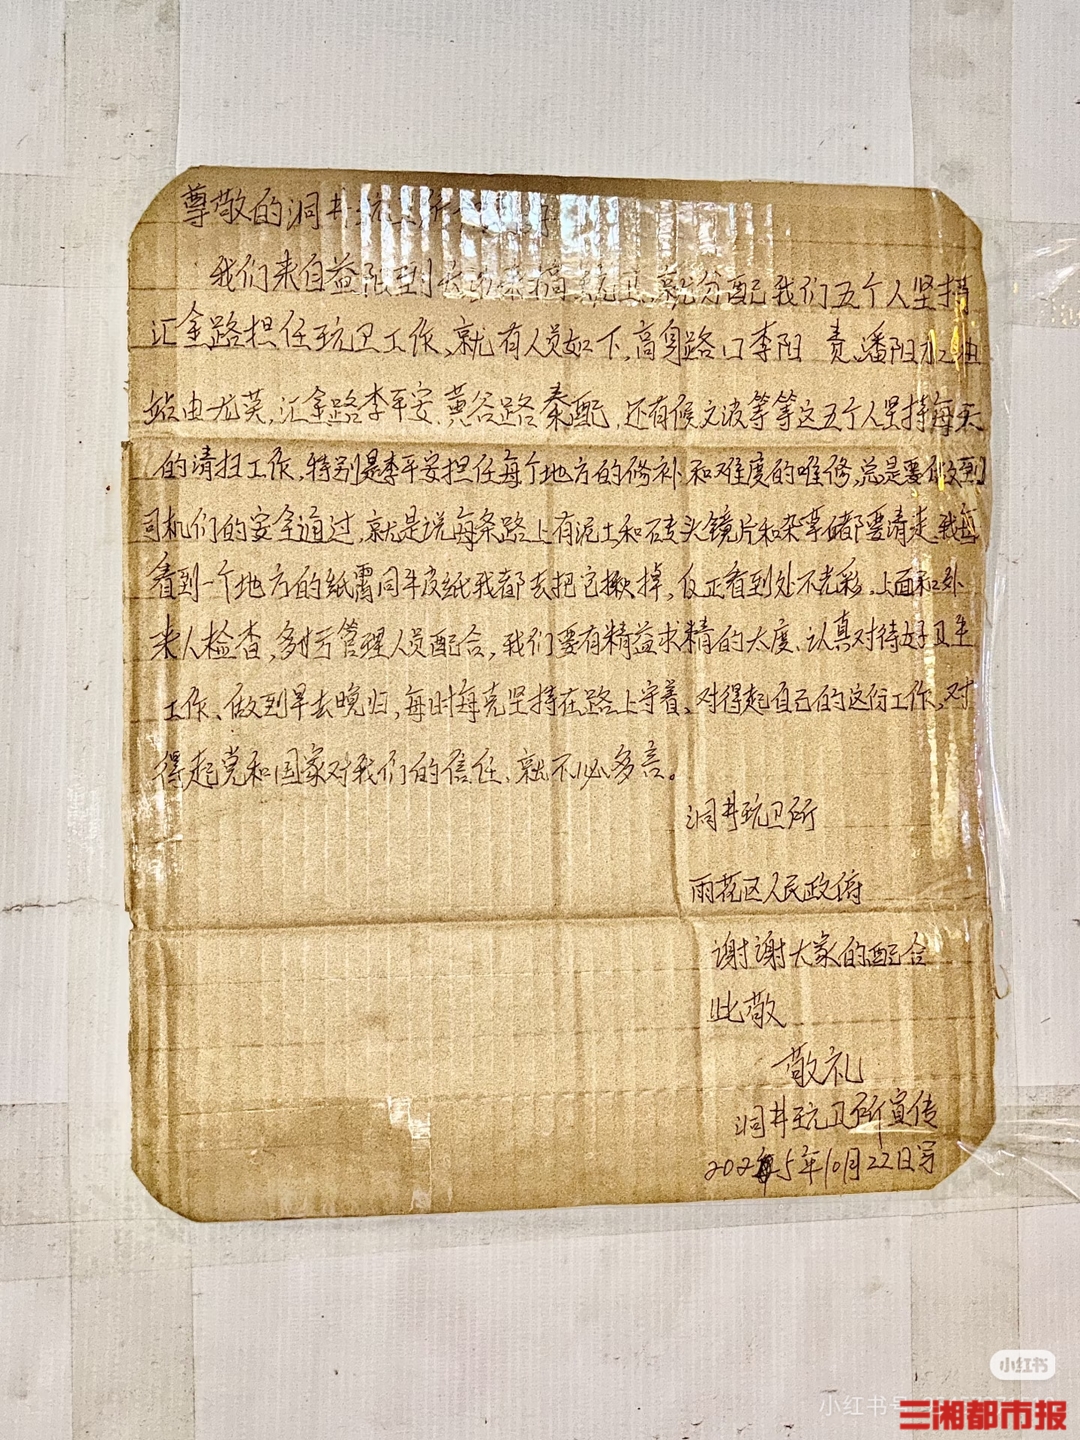 尊敬的洞井
我们来自益阳到长沙来搞玩卫,就分配我们五个人坚持
汇金路担任玩卫工作、就有人员如下,高身路口李阳 责、潘阳加油
站由尤英,汇金路李平安、黄谷路秦配,还有候文波等等这五个人坚持每天
的请扫工作,特别是李平安担任每个地方的修补和难度的唯修,总是要做到
司机们的安全通过,就是说每条路上有泥土和砖头镜片和杂草都要请走,我
看到一个地方的纸
去把它揪掉,反正看到处不光彩,上面和外
来人检查,多亏管理人员配合,我们要有精益求精的太度、认真对待好卫生
工作、做到早去晚归,每时每克坚持在路上守着、对得起自己的这份工作,对
得起党和国家对我们的信任、就不必多言。
洞井玩卫所
雨花区人民政府
谢谢大家的配合
此敬
敬礼
洞井玩卫所宣传
2025年10月22日写
小红书
小红书号
三湘都市报